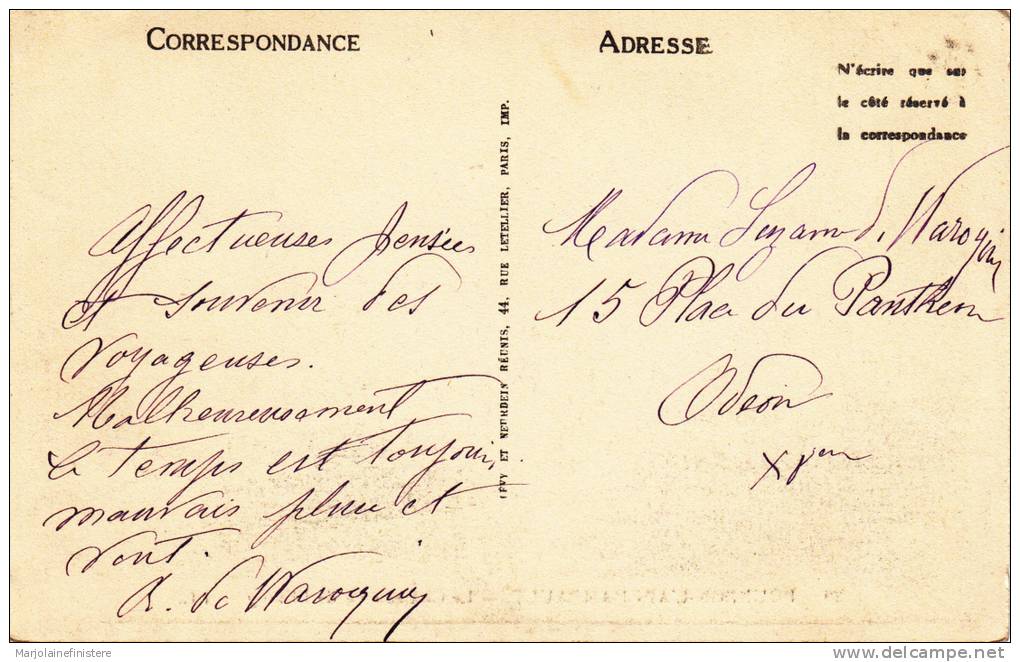 CORRESPONDANCE
ADRESSE
N'écrire que sur
le côté réservé à
la correspondance
Affectueuses pensées
et souvenir des
voyageuses.
Malheureusement
le temps est toujours
mauvais pluie et
vent.
LÉVY ET NEURDEIN RÉUNIS, 44, RUE LETELLIER, PARIS, IMP.
Madame Suzanne d. Warocquier
15 Place du Pantheon
Odeon
Marjolainefinistere
delcampe.net